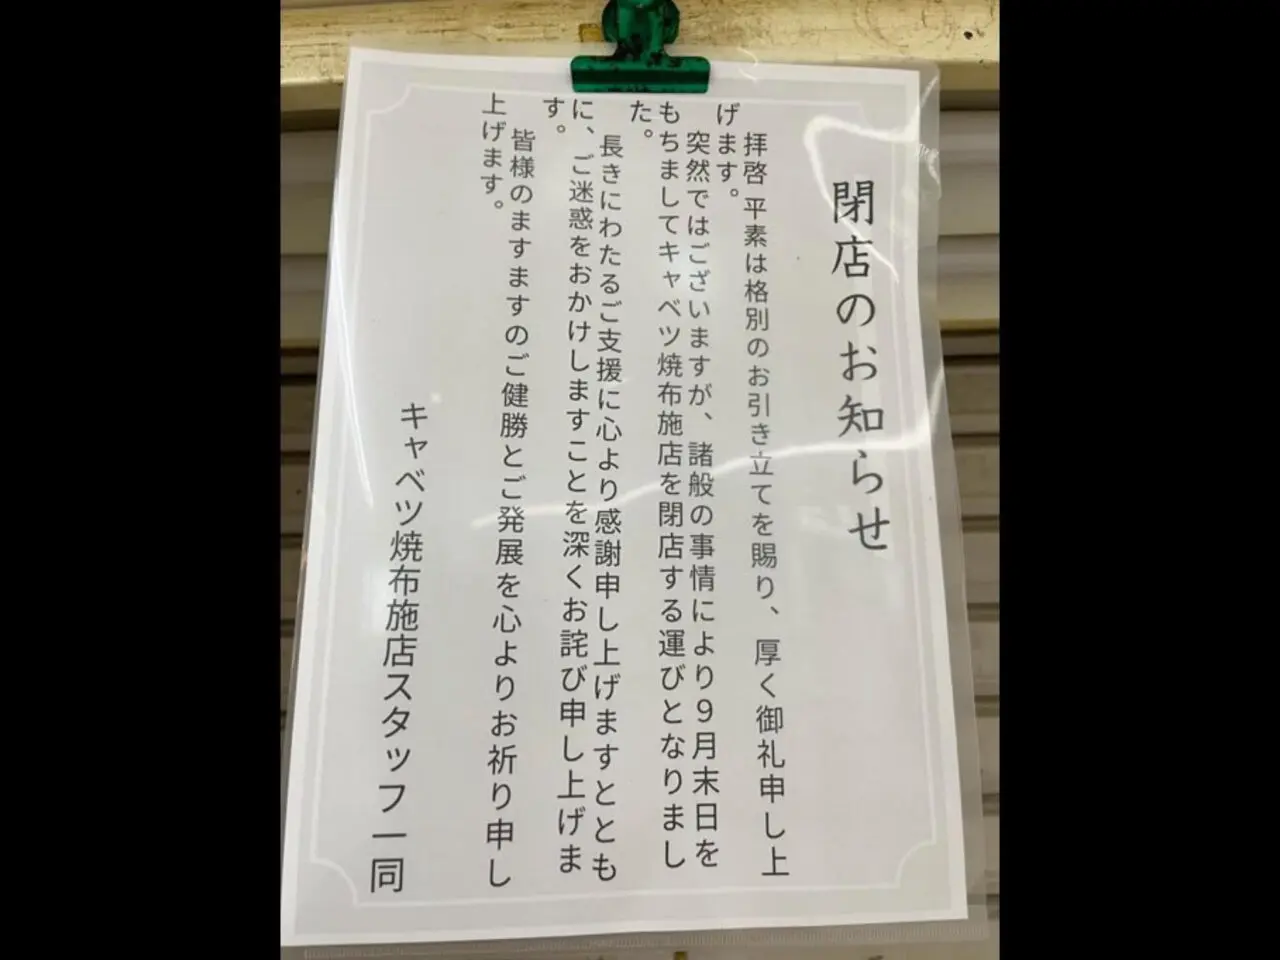 閉店のお知らせ
拝啓 平素は格別のお引き立てを賜り、厚く御礼申し上
げます。
突然ではございますが、諸般の事情により9月末日を
もちましてキャベツ焼布施店を閉店する運びとなりまし
た。
長きにわたるご支援に心より感謝申し上げますととも
に、ご迷惑をおかけしますことを深くお詫び申し上げま
す。
皆様のますますのご健勝とご発展を心よりお祈り申し
上げます。
キャベツ焼布施店スタッフ一同